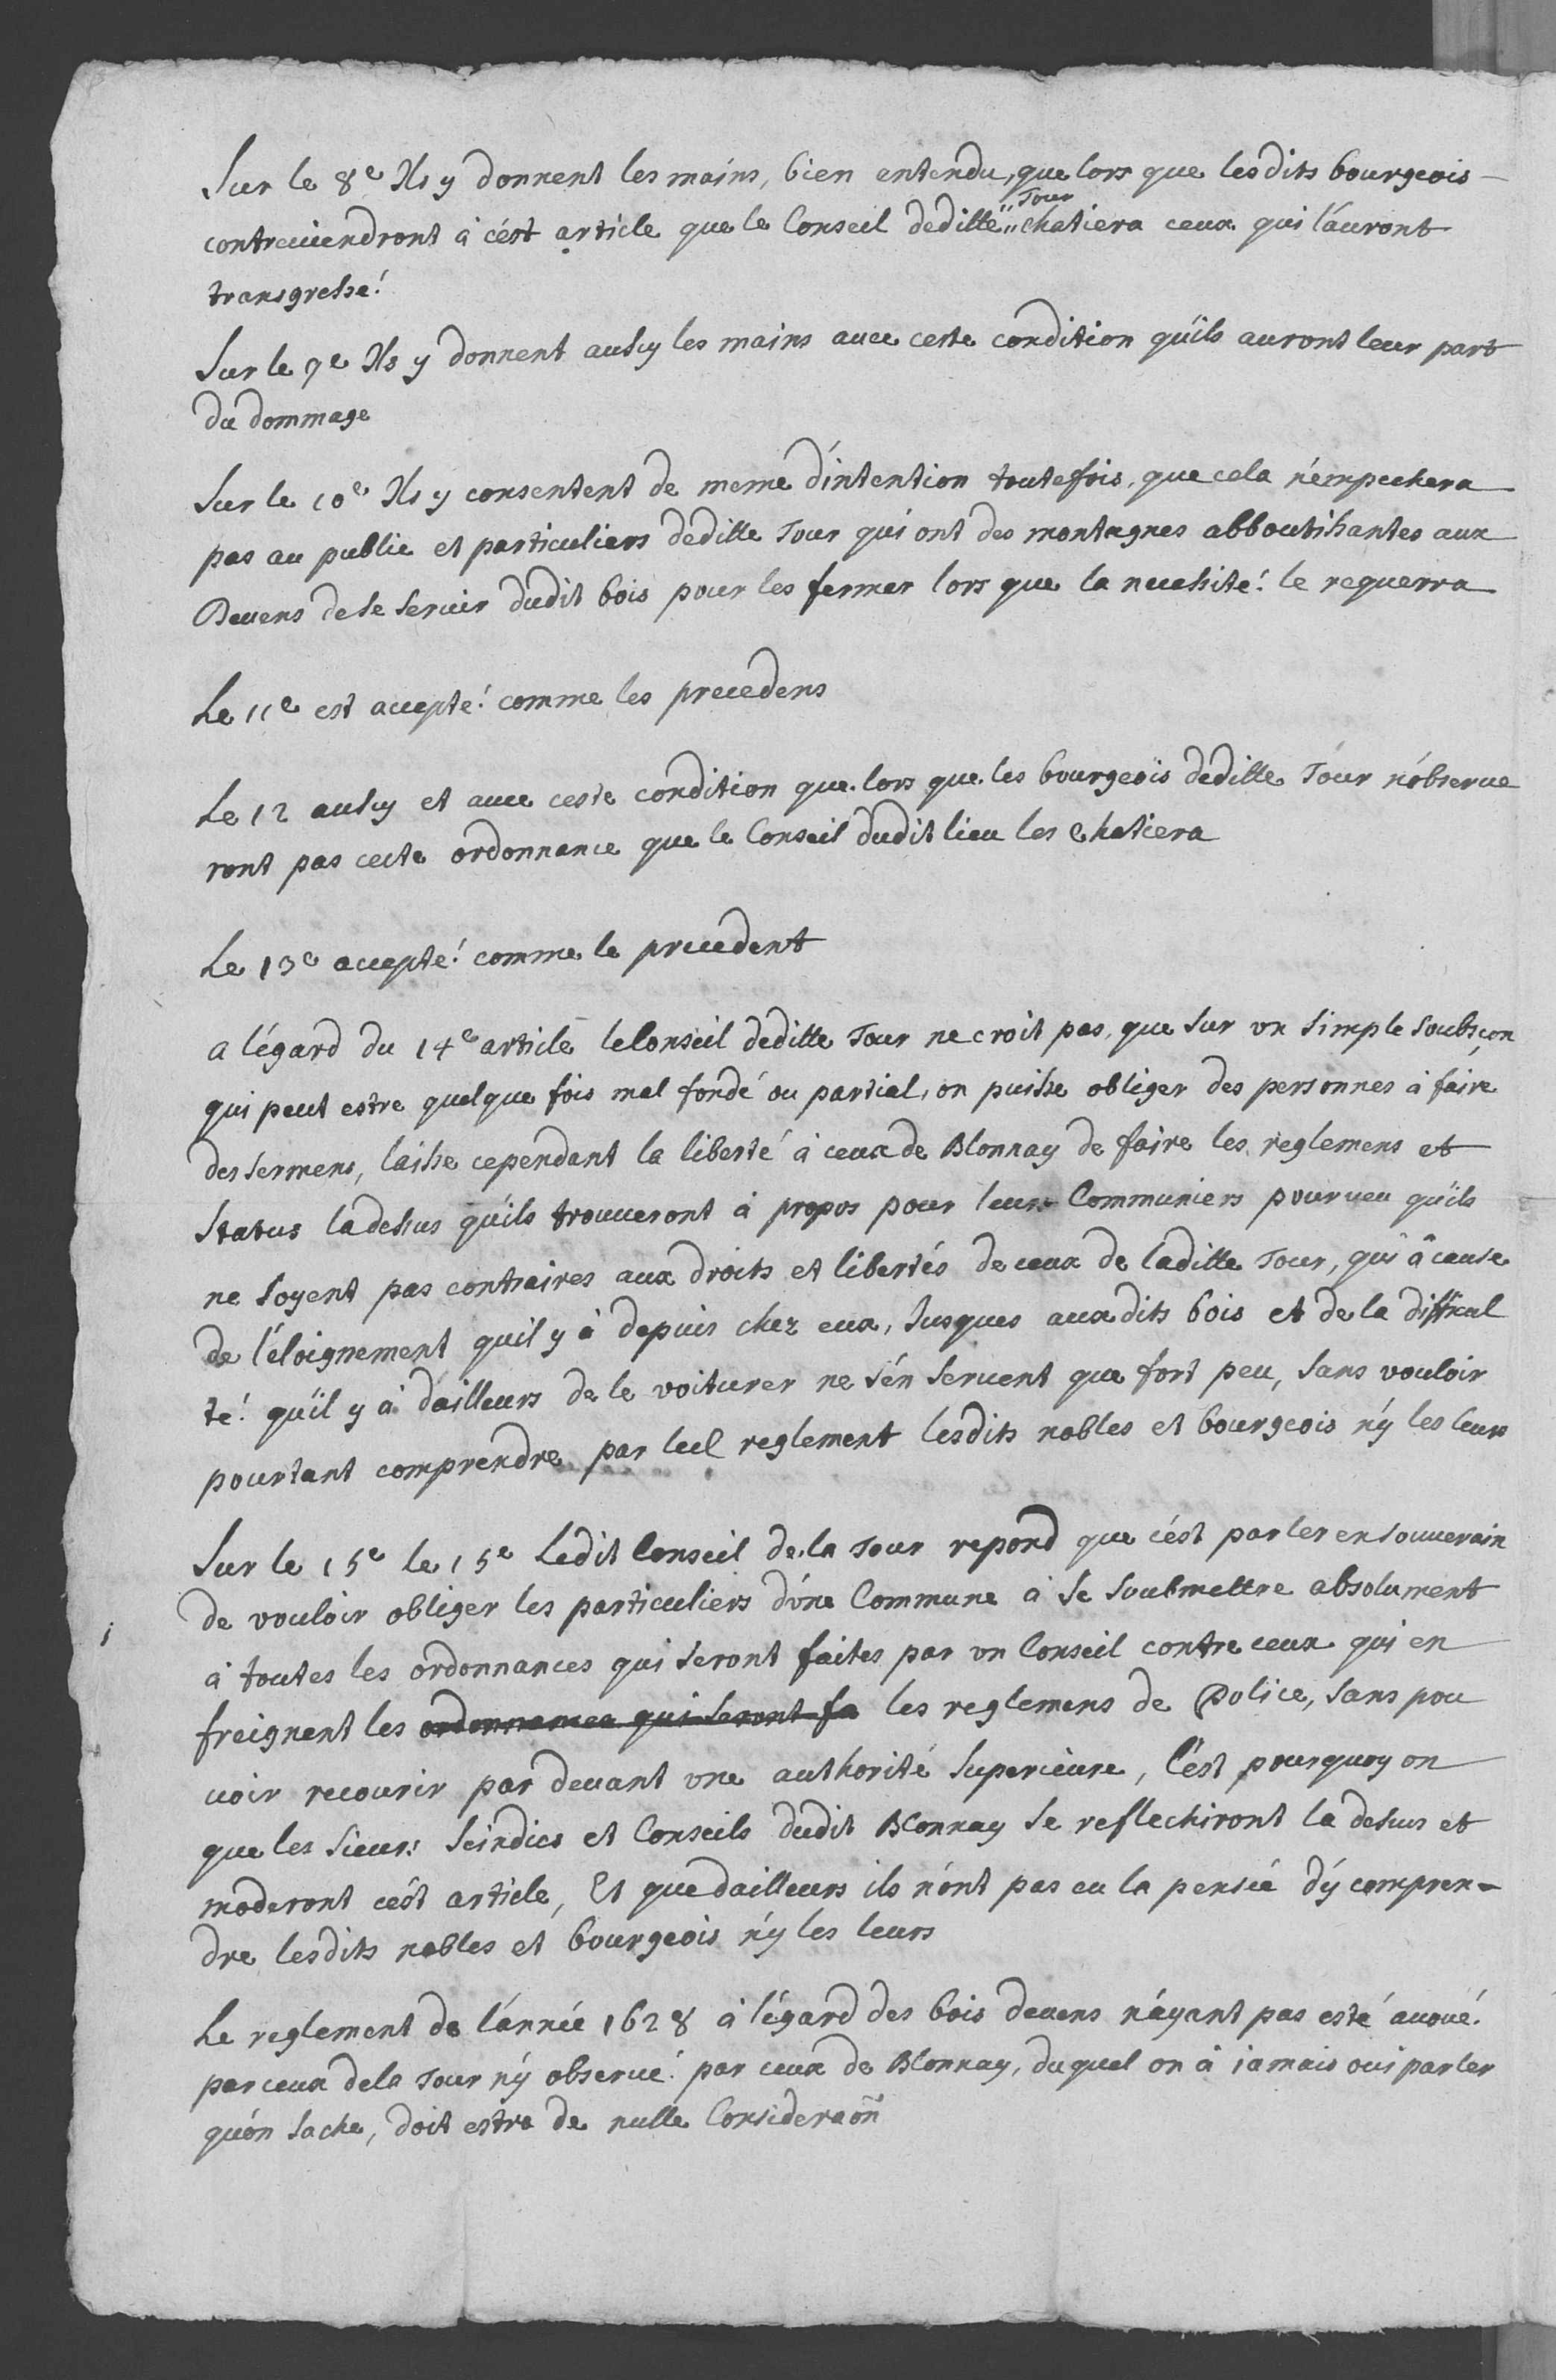 Sur le 8e Ils y donnent les mains, bien entendu, que lors que lesdits bourgeois
contreviendront à c'est article que le Conseil deditte Tour chatiera ceux qui l'auront
transgressé
Sur le 9e Ils y donnent aussy les mains avec ceste condition qu'ils auront leur part
du dommage
Sur le 10e Ils y consentent de meme d'intention toutefois, que cela n'empechera
pas au public et particuliers deditte Tour qui ont des montagnes abboutissantes aux
Devens de se servir dudit bois pour les fermer lors que la necessité le requerra
Le 11e est accepté comme les precedens
Le 12 aussy et avec ceste condition que lors que les bourgeois deditte Tour n'observe
ront pas cecte ordonnance que le Conseil dudit lieu les chatiera
Le 13e accepté comme le precedent
a l'égard du 14e article le Conseil deditte Tour ne croit pas, que sur vn simple soubsçon
qui peut estre quelque fois mal fondé ou partial, on puisse obliger des personnes à faire
des sermens, laisse cependant la liberté à ceux de Blonnay de faire les reglemens et
status la dessus qu'ils trouveront à propos pour leurs Communiers pourveu qu'ils
ne soyent pas contraires aux droits et libertés de ceux de laditte Tour, qui à cause
de l'éloignement qu'il y à depuis chez eux, Jusques aux dits bois et de la difficul
té qu'il y à d'ailleurs de le voiturer ne s'én servent que fort peu, sans vouloir
pourtant comprendre par tel reglement lesdits nobles et bourgeois n'y les leurs
Sur le 15e le 15e Ledit Conseil de la Tour repond que c'ést parler en souverain
de vouloir obliger les particuliers d'vne Commune à se soubmettre absolument
à toutes les ordonnances qui seront faites par vn Conseil contre ceux qui en
freignent les ordonnances qui seront fa les reglemens de Police, sans pou
voir recourir par devant vne authorité Superieure, C'est pourquoy on
que les Sieurs Seindics et Conseils dudit Blonnay se reflechiront la dessus et
moderont c'ést article, Et que dailleurs ils n'ont pas eu la pensée d'y compren-
dre lesdits nobles et bourgeois n'y les leurs
Le reglement de l'année 1628 à l'égard des bois devens n'ayant pas esté avoué
par ceux dela Tour n'y observé par ceux de Blonnay, duquel on à jamais oui parler
qu'on sache, doit estre de nulle Consideraon